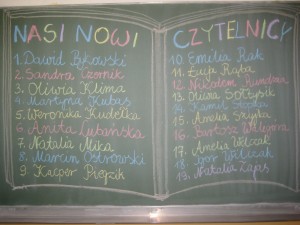 NASI NOWI
1. Dawid Bykowski
2. Sandra Czornik
3. Oliwia Klima
4. Martyna Kubas
5. Weronika Kudełka
6. Anita Lubańska
7. Natalia Mika
8. Marcin Ostrowski
9. Kacper Pięzik
CZYTELNICY
10. Emilia Rak
11. Łucja Rąba
12. Nikodem
13. Oliwia
14. Kamil
15. Amelia
16. Bartosz
17. Amelia Wilczak
18. Igor Wilczak
19. Natalia Zając